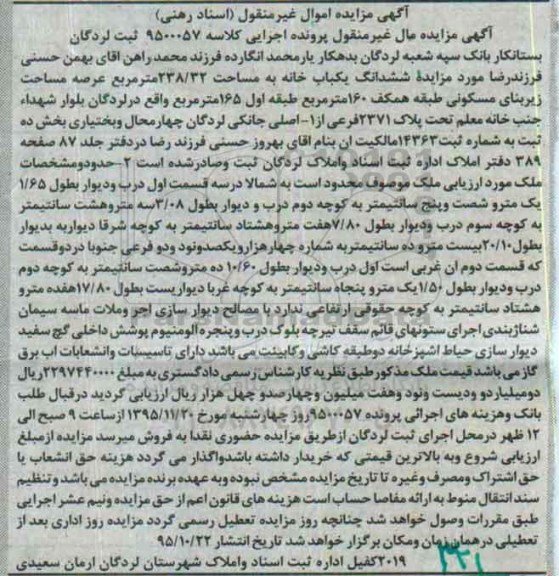 آگهی مزایده اموال غیرمنقول (اسناد رهنی)
آگهی مزایده مال غیرمنقول پرونده اجرایی کلاسه ۹۵۰۰۰۵۷ ثبت لردگان
بستانکار بانک سپه شعبه لردگان بدهکار یارمحمد انگارده فرزند محمد راهن اقای بهمن حسنی
فرزندرضا مورد مزایدهٔ ششدانگ یکباب خانه به مساحت ۲۳۸/۳۲مترمربع عرصه مساحت
زیربنای مسکونی طبقه همکف ۱۶۰مترمربع طبقه اول ۱۶۵مترمربع واقع درلردگان بلوار شهداء
جنب خانه معلم تحت پلاک ۲۳۷۱فرعی از۱-اصلی جانکی لردگان چهارمحال وبختیاری بخش ده
ثبت به شماره ثبت۱۴۳۶۳مالکیت ان بنام اقای بهروز حسنی فرزند رضا دردفتر جلد ۸۷ صفحه
۳۸۹ دفتر املاک اداره ثبت اسناد واملاک لردگان ثبت وصادرشده است ۲-حدودومشخصات
ملک مورد ارزیابی ملک موصوف محدود است به شمالا درسه قسمت اول درب ودیوار بطول ۱/۶۵
یک مترو شصت وپنج سانتیمتر به کوچه دوم درب و دیوار بطول ۳/۰۸سه متروهشت سانتیمتر
به کوچه سوم درب ودیوار بطول ۷/۸۰هفت متروهشتاد سانتیمتر به کوچه شرقا دیواربه بدیوار
بطول۲۰/۱۰بیست مترو ده سانتیمتربه شماره چهارهزارویکصدونود ودو فرعی جنوبا دردوقسمت
که قسمت دوم ان غربی است اول درب ودیوار بطول ۱۰/۶۰ ده متروشصت سانتیمتر به کوچه دوم
درب ودیوار بطول ۱/۵۰یک مترو پنجاه سانتیمتر به کوچه غربا دیواریست بطول ۱۷/۸۰هفده مترو
هشتاد سانتیمتر به کوچه حقوقی ارتفاعی ندارد با مصالح دیوار سازی اجر وملات ماسه سیمان
شناژبندی اجرای ستونهای قائم سقف تیرچه بلوک درب وپنجره الومنیوم پوشش داخلی گچ سفید
دیوار سازی حیاط اشپزخانه دوطبقه کاشی وکابینت می باشد دارای تاسیسات وانشعابات اب برق
گاز می باشد قیمت ملک مذکور طبق نظریه کارشناس رسمی دادگستری به مبلغ ۲۲۹۷۴۴۰۰۰۰ریال
دومیلیاردو ودیست ونود وهفت میلیون وچهارصدو چهل هزار ریال ارزیابی گردید درقبال طلب
بانک وهزینه های اجرائی پرونده ۹۵۰۰۰۵۷روز چهارشنبه مورخ ۱۳۹۵/۱۱/۲۰ ازساعت ۹ صبح الی
۱۲ ظهر درمحل اجرای ثبت لردگان ازطریق مزایده حضوری نقدا به فروش میرسد مزایده ازمبلغ
ارزیابی شروع وبه بالاترین قیمتی که خریدار داشته باشدواگذار می گردد هزینه حق انشعاب یا
حق اشتراک ومصرف وغیره تا تاریخ مزایده مشخص نبوده وبه عهده برنده مزایده می باشد وتنظیم
سند انتقال منوط به ارائه مفاصا حساب است هزینه های قانون اعم از حق مزایده ونیم عشر اجرایی
طبق مقررات وصول خواهد شد چنانچه روز مزایده تعطیل رسمی گردد مزایده روز اداری بعد از
تعطیلی درهمان زمان ومکان برگزار خواهد شد تاریخ انتشار ۹۵/۱۰/۲۲
۲۰۱۹کفیل اداره ثبت اسناد واملاک شهرستان لردگان ارمان سعیدی